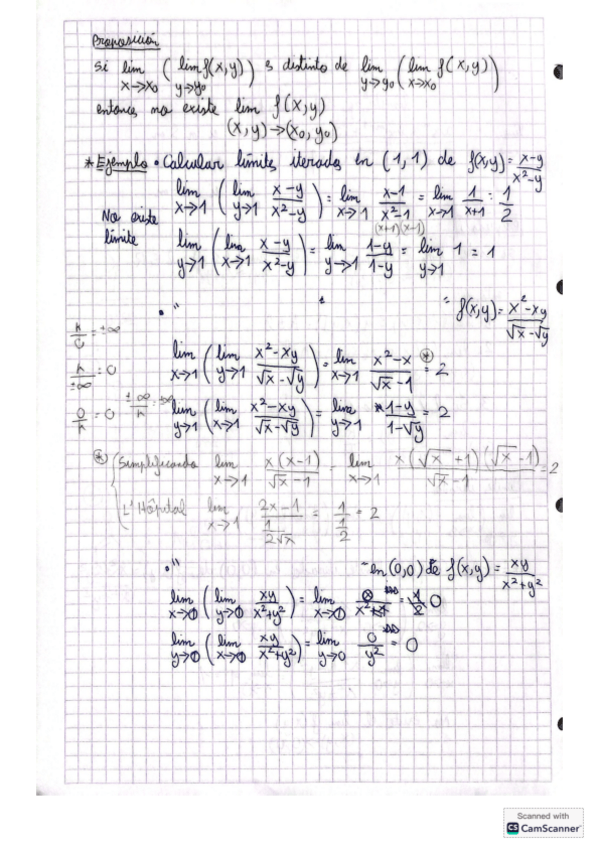 Proposición
Si lim x→x₀ ( lim y→y₀ f(x,y) ) es distinto de lim y→y₀ ( lim x→x₀ f(x,y) )
entonces no existe lim (x,y)→(x₀,y₀) f(x,y)
* Ejemplo • Calcular límites iterados en (1,1) de f(x,y) = (x-y)/(x²-y)
lim x→1 ( lim y→1 (x-y)/(x²-y) ) = lim x→1 (x-1)/(x²-1) = lim x→1 1/(x+1) = 1/2
(x+1)(x-1)
No existe límite
lim y→1 ( lim x→1 (x-y)/(x²-y) ) = lim y→1 (1-y)/(1-y) = lim y→1 1 = 1
• " " f(x,y) = (x²-xy)/(√x-√y)
k/0 = ±∞
k/±∞ = 0
0/k = 0
±∞/k = ±∞
lim x→1 ( lim y→1 (x²-xy)/(√x-√y) ) = lim x→1 (x²-x)/(√x-1) = 2 (*)
lim y→1 ( lim x→1 (x²-xy)/(√x-√y) ) = lim y→1 (1-y)/(1-√y) = 2
(*) { Simplificando lim x→1 x(x-1)/(√x-1) = lim x→1 x(√x+1)(√x-1)/(√x-1) = 2
L'Hôpital lim x→1 (2x-1)/(1/(2√x)) = 1/(1/2) = 2
• " " en (0,0) de f(x,y) = xy/(x²+y²)
lim x→0 ( lim y→0 xy/(x²+y²) ) = lim x→0 0/x² = 0
lim y→0 ( lim x→0 xy/(x²+y²) ) = lim y→0 0/y² = 0
Scanned with
CS CamScanner